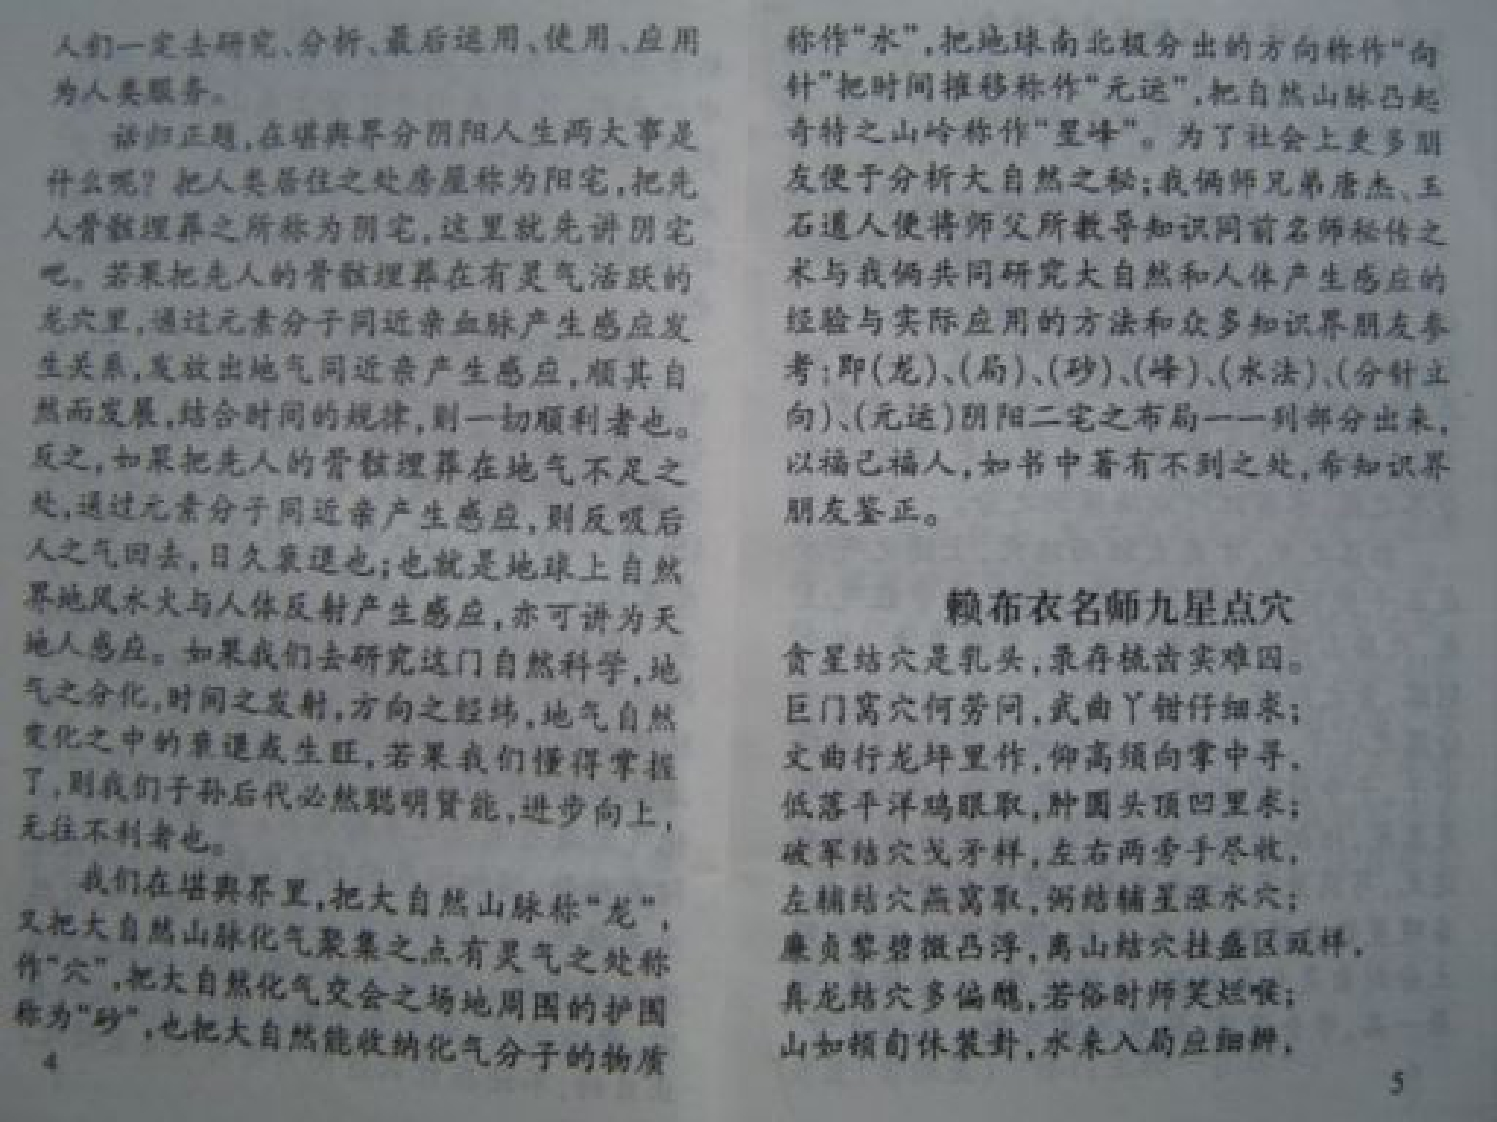 人们一定去研究、分析、最后运用、使用、应用
为人类服务。
话归正题,在堪舆界分阴阳人生两大事是
什么呢? 把人类居住之处房屋称为阳宅,把先
人骨骸埋葬之所称为阴宅,这里就先讲阴宅
吧。若果把先人的骨骸埋葬在有灵气活跃的
龙穴里,通过元素分子同近亲血脉产生感应发
生关系,发放出地气同近亲产生感应,顺其自
然而发展,结合时间的规律,则一切顺利者也。
反之,如果把先人的骨骸埋葬在地气不足之
处,通过元素分子同近亲产生感应,则反吸后
人之气回去,日久衰退也;也就是地球上自然
界地风水火与人体反射产生感应,亦可讲为天
地人感应。如果我们去研究这门自然科学,地
气之分化,时间之发射,方向之经纬,地气自然
变化之中的衰退或生旺,若果我们懂得掌握
了,则我们子孙后代必然聪明贤能,进步向上,
无往不利者也。
我们在堪舆界里,把大自然山脉称“龙”,
又把大自然山脉化气聚集之点有灵气之处称
作“穴”,把大自然化气交会之场地周围的护围
称为“砂”,也把大自然能收纳化气分子的物质
4
称作“水”,把地球南北极分出的方向称作“向
针”把时间推移称作“元运”,把自然山脉凸起
奇特之山岭称作“星峰”。为了社会上更多朋
友便于分析大自然之秘;我俩师兄弟唐杰、玉
石道人便将师父所教导知识同前名师秘传之
术与我俩共同研究大自然和人体产生感应的
经验与实际应用的方法和众多知识界朋友参
考;即(龙)、(局)、(砂)、(峰)、(水法)、(分针立
向)、(元运)阴阳二宅之布局一一列部分出来,
以福己福人,如书中著有不到之处,希知识界
朋友鉴正。
赖布衣名师九星点穴
贪星结穴是乳头,录存梳齿实难因。
巨门窝穴何劳问,武曲丫钳仔细求;
文曲行龙坪里作,仰高须向掌中寻。
低落平洋鸡眼取,肿圆头顶凹里求;
破军结穴戈矛样,左右两旁手尽收,
左辅结穴燕窝取,弼结辅星涨水穴;
廉贞黎碧微凸浮,离山结穴挂盏样,
真龙结穴多偏醜,若俗时师笑烂喉;
山如顿旬休装卦,水来入局应细辨,
5